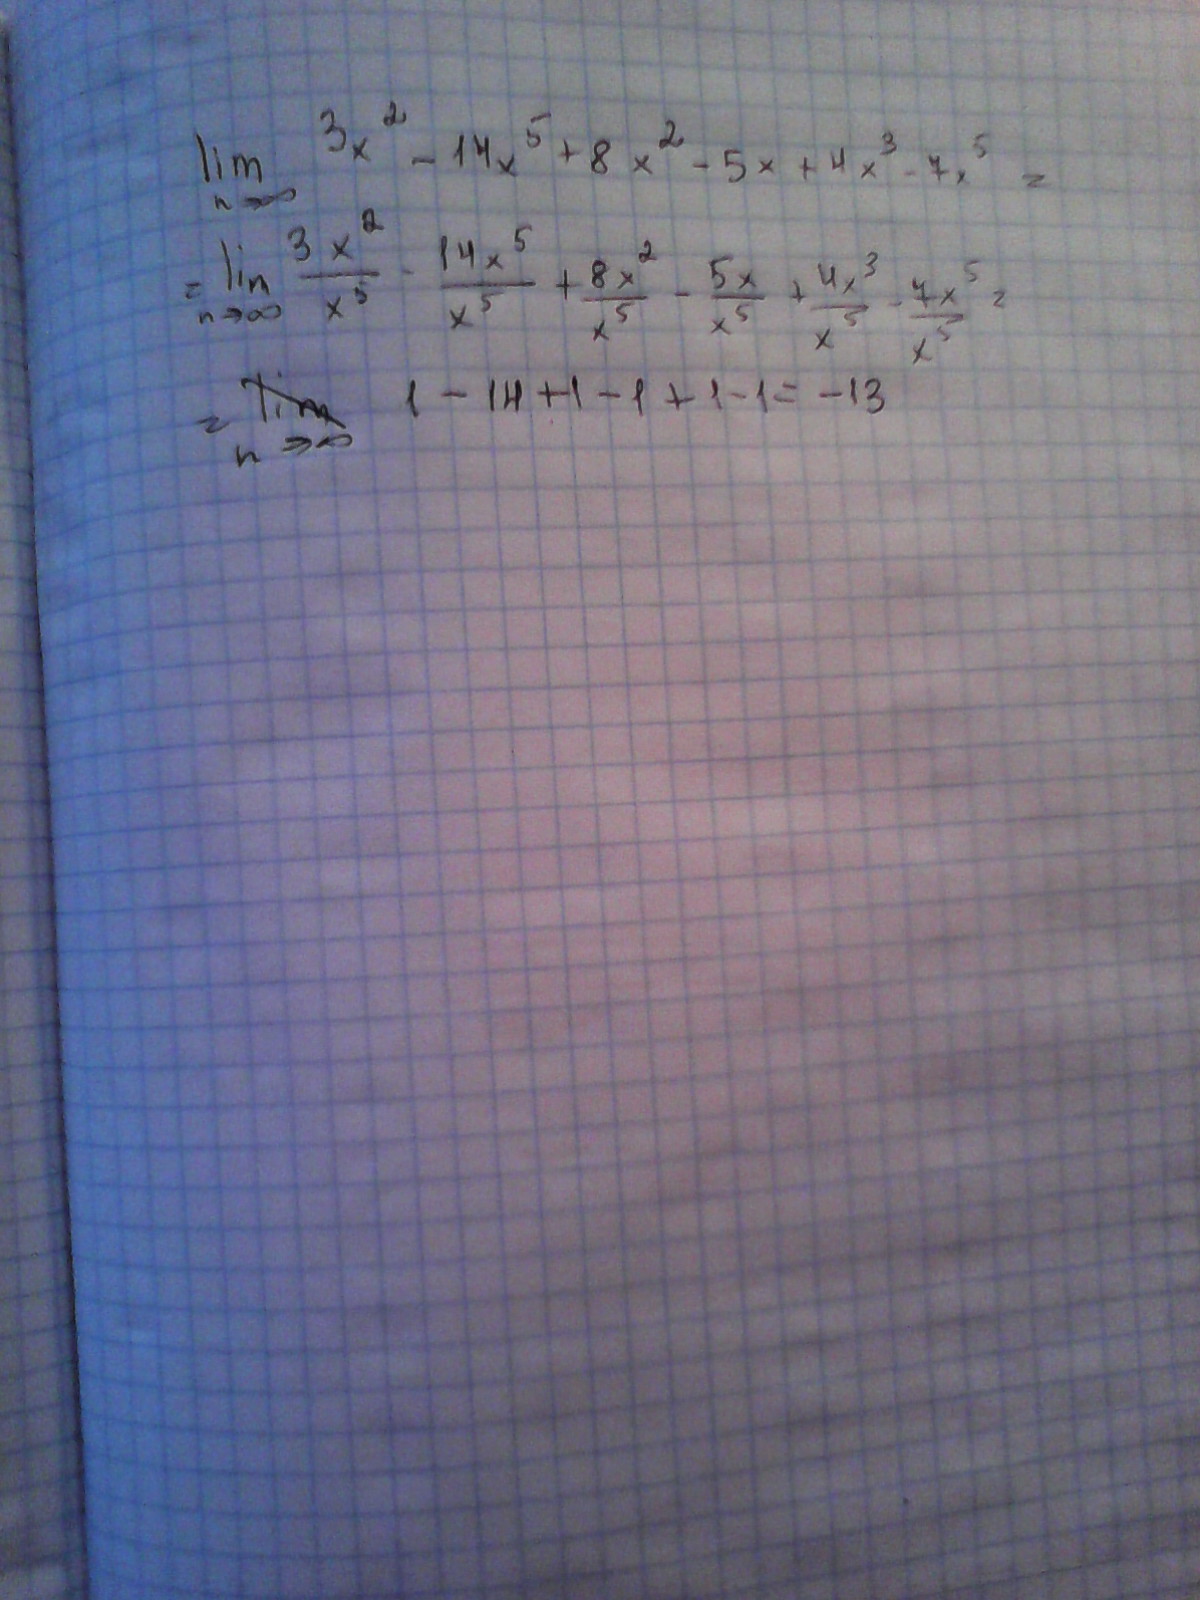 lim n→∞ 3x² - 14x⁵ + 8x² - 5x + 4x³ - 7x⁵ =
= lim n→∞ 3x²/x⁵ - 14x⁵/x⁵ + 8x²/x⁵ - 5x/x⁵ + 4x³/x⁵ - 7x⁵/x⁵ =
= lim n→∞ 1 - 14 + 1 - 1 + 1 - 1 = -13